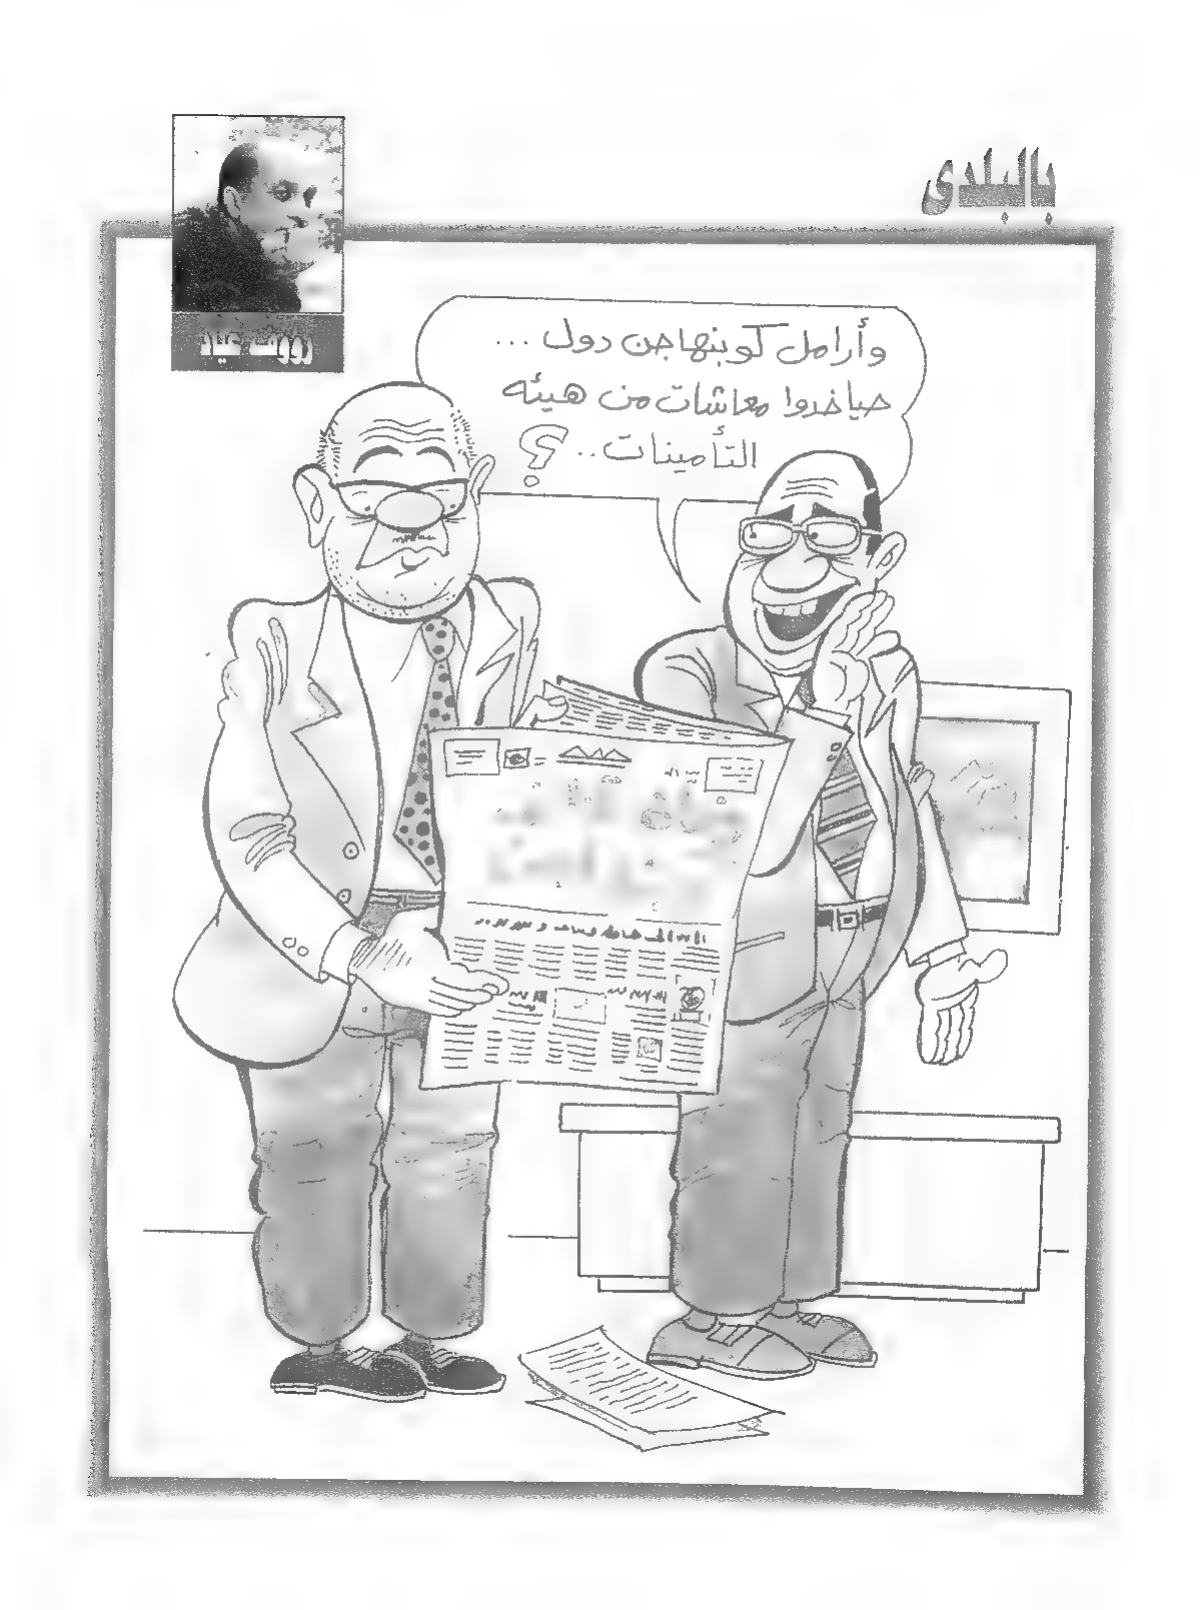 بالبلدى
رؤوف عياد
وأرامل كوبنهاجن دول ...
حياخدوا معاشات من هيئه
التأمينات .. ؟